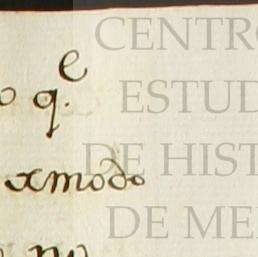 CENTRO
o q.e
ESTUD
DE HIST
xmodo
DE ME